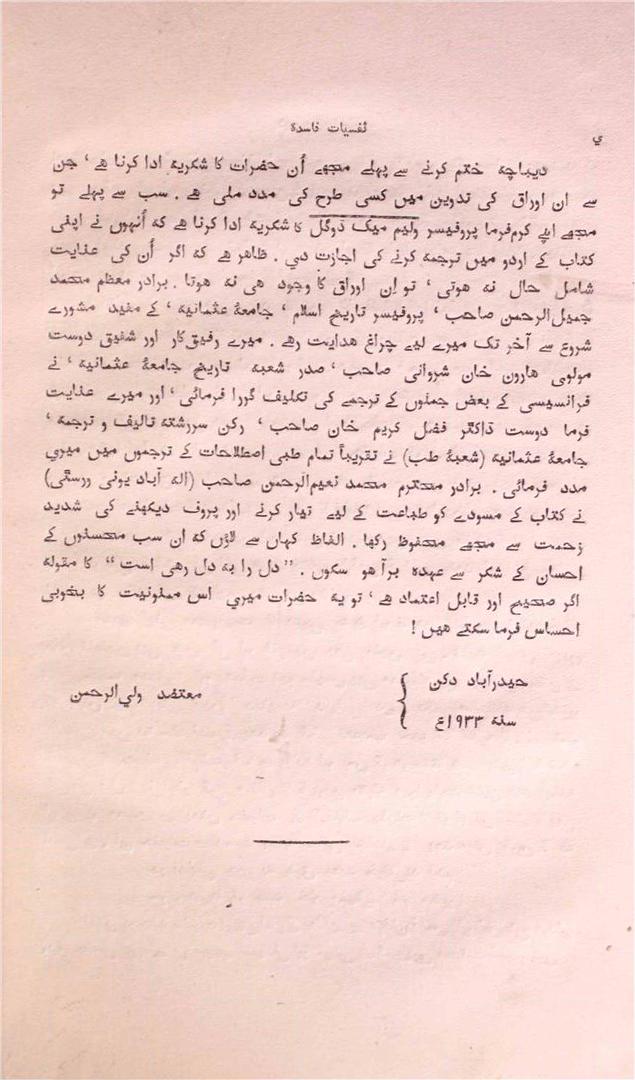 نفسیات فاسدہ
ي
دیباچہ ختم کرنے سے پہلے مجھے اُن حضرات کا شکریہ ادا کرنا ہے ‘ جن
سے ان اوراق کی تدوین میں کسی طرح کی مدد ملی ہے . سب سے پہلے تو
مجھے اپنے کرم‌فرما پروفیسر ولیم میک ڈوگل کا شکریہ ادا کرنا ہے کہ اُنہوں نے اپنی
کتاب کے اردو میں ترجمہ کرنے کی اجازت دي . ظاہر ہے کہ اگر اُن کی عنایت
شامل حال نہ ہوتی ‘ تو اِن اوراق کا وجود ہی نہ ہوتا . برادر معظم محمد
جمیل‌الرحمن صاحب ‘ پروفیسر تاریخ اسلام ‘ جامعۂ عثمانیہ ‘ کے مفید مشورے
شروع سے آخر تک میرے لیے چراغ ہدایت رہے . میرے رفیق‌کار اور شفیق دوست
مولوی ہارون خان شروانی صاحب ‘ صدر شعبۂ تاریخ جامعۂ عثمانیہ ‘ نے
فرانسیسی کے بعض جملوں کے ترجمے کی تکلیف گورا فرمائی ‘ اور میرے عنایت
فرما دوست ڈاکٹر فضل کریم خان صاحب ‘ رکن سررشتۂ تالیف و ترجمہ ‘
جامعۂ عثمانیہ (شعبۂ طب) نے تقریباً تمام طبی اصطلاحات کے ترجموں میں میري
مدد فرمائی . برادر محترم محمد نعیم‌الرحمن صاحب (الہ آباد یونی ورسٹی)
نے کتاب کے مسودے کو طباعت کے لیے تیار کرنے اور پروف دیکھنے کی شدید
زحمت سے مجھے محفوظ رکھا . الفاظ کہاں سے لاؤں کہ ان سب محسنوں کے
احسان کے شکر سے عہدہ برآ ہو سکوں . ”دل را بہ دل رہی است“ کا مقولہ
اگر صحیح اور قابل اعتماد ہے ‘ تو یہ حضرات میری اس ممنونیت کا بخوبی
احساس فرما سکتے ہیں !
حیدرآباد دکن
سنہ ۱۹۳۳ع
معتضد ولي‌الرحمن